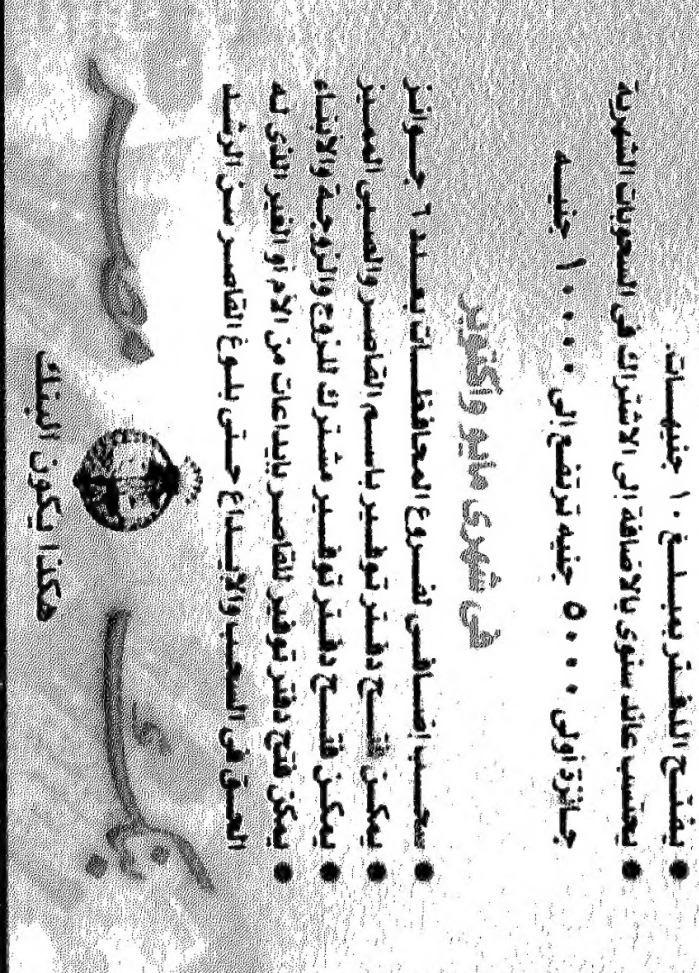 ● يفتح الدفتر بمبلغ ١٠ جنيهات.
● يحتسب عائد سنوى بالاضافة إلى الاشتراك فى السحوبات الشهرية
جائزة أولى ٥٠٠٠ جنيه ترتفع إلى ١٠٠٠٠ جنيه
فى شهرى مايو واكتوبر
● سحب إضافى لفروع المحافظات بعدد ٦ جوائز
● يمكن فتح دفتر توفير باسم القاصر والصبى المميز
● يمكن فتح دفتر توفير مشترك للزوج والزوجة والأبناء
● يمكن فتح دفتر توفير للقاصر بإيداعات من الأم أو الغير الذى له
الحق فى السحب والإيداع حتى بلوغ القاصر سن الرشد
هكذا يكون البنك